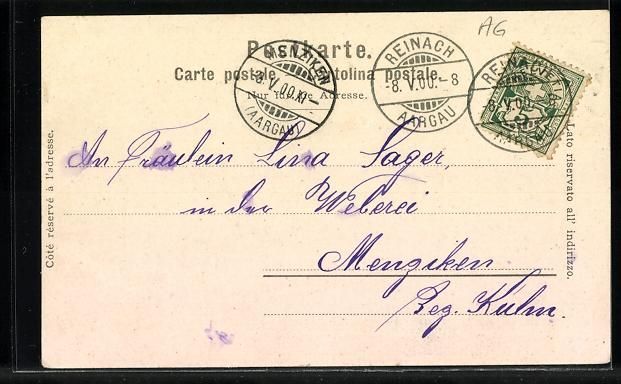 AG
Postkarte.
Carte postale. Cartolina postale.
Nur für die Adresse.
MENZIKEN
8.V.00.XI-
(AARGAU)
REINACH
-8.V.00.-8
AARGAU
REINACH
8.V.00.-8
AARGAU
HELVETIA
5
An Fräulein Lina Sager,
in der Weberei
Menziken
Bez. Kulm.
Côté réservé à l'adresse.
Lato riservato all' indirizzo.